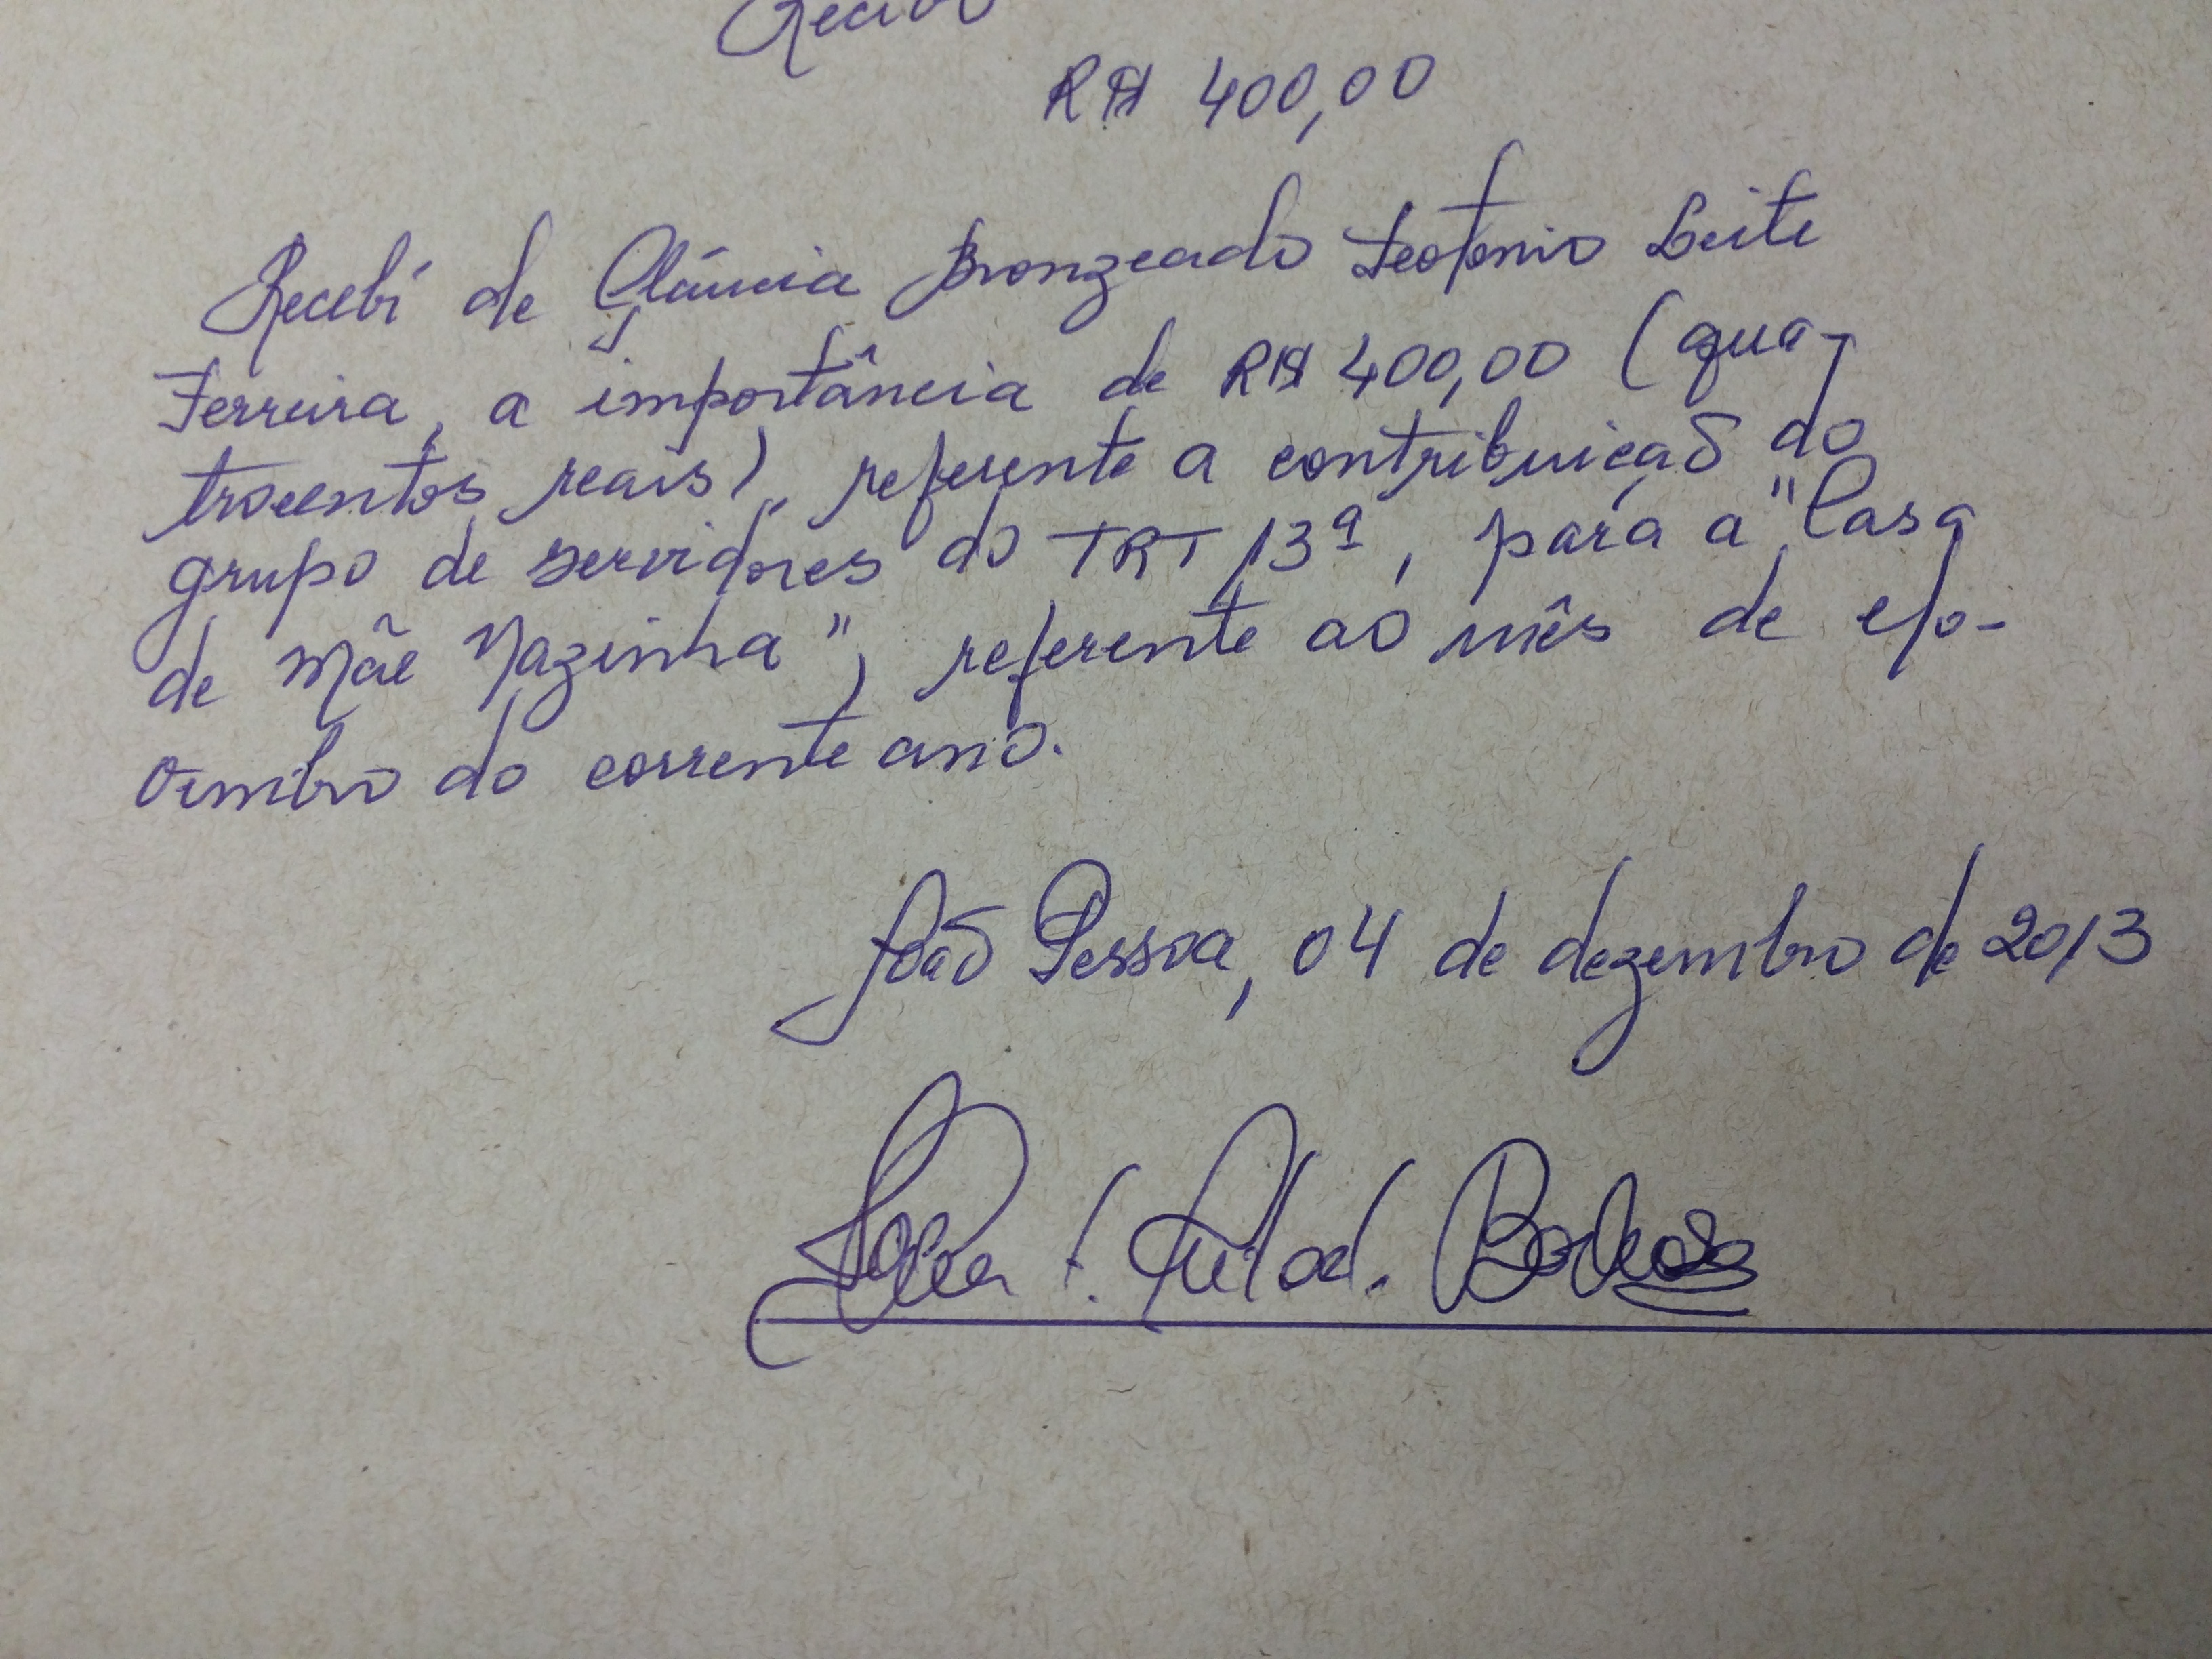 Recibo
R$ 400,00
Recebí de Gláucia Bronzeado Teotonio Leite
Ferreira, a importância de R$ 400,00 (qua-
trocentos reais), referente a contribuição do
grupo de servidores do TRT 13ª, para a "Casa
de Mãe Nazinha", referente ao mês de
do corrente ano.
João Pessoa, 04 de dezembro de 2013